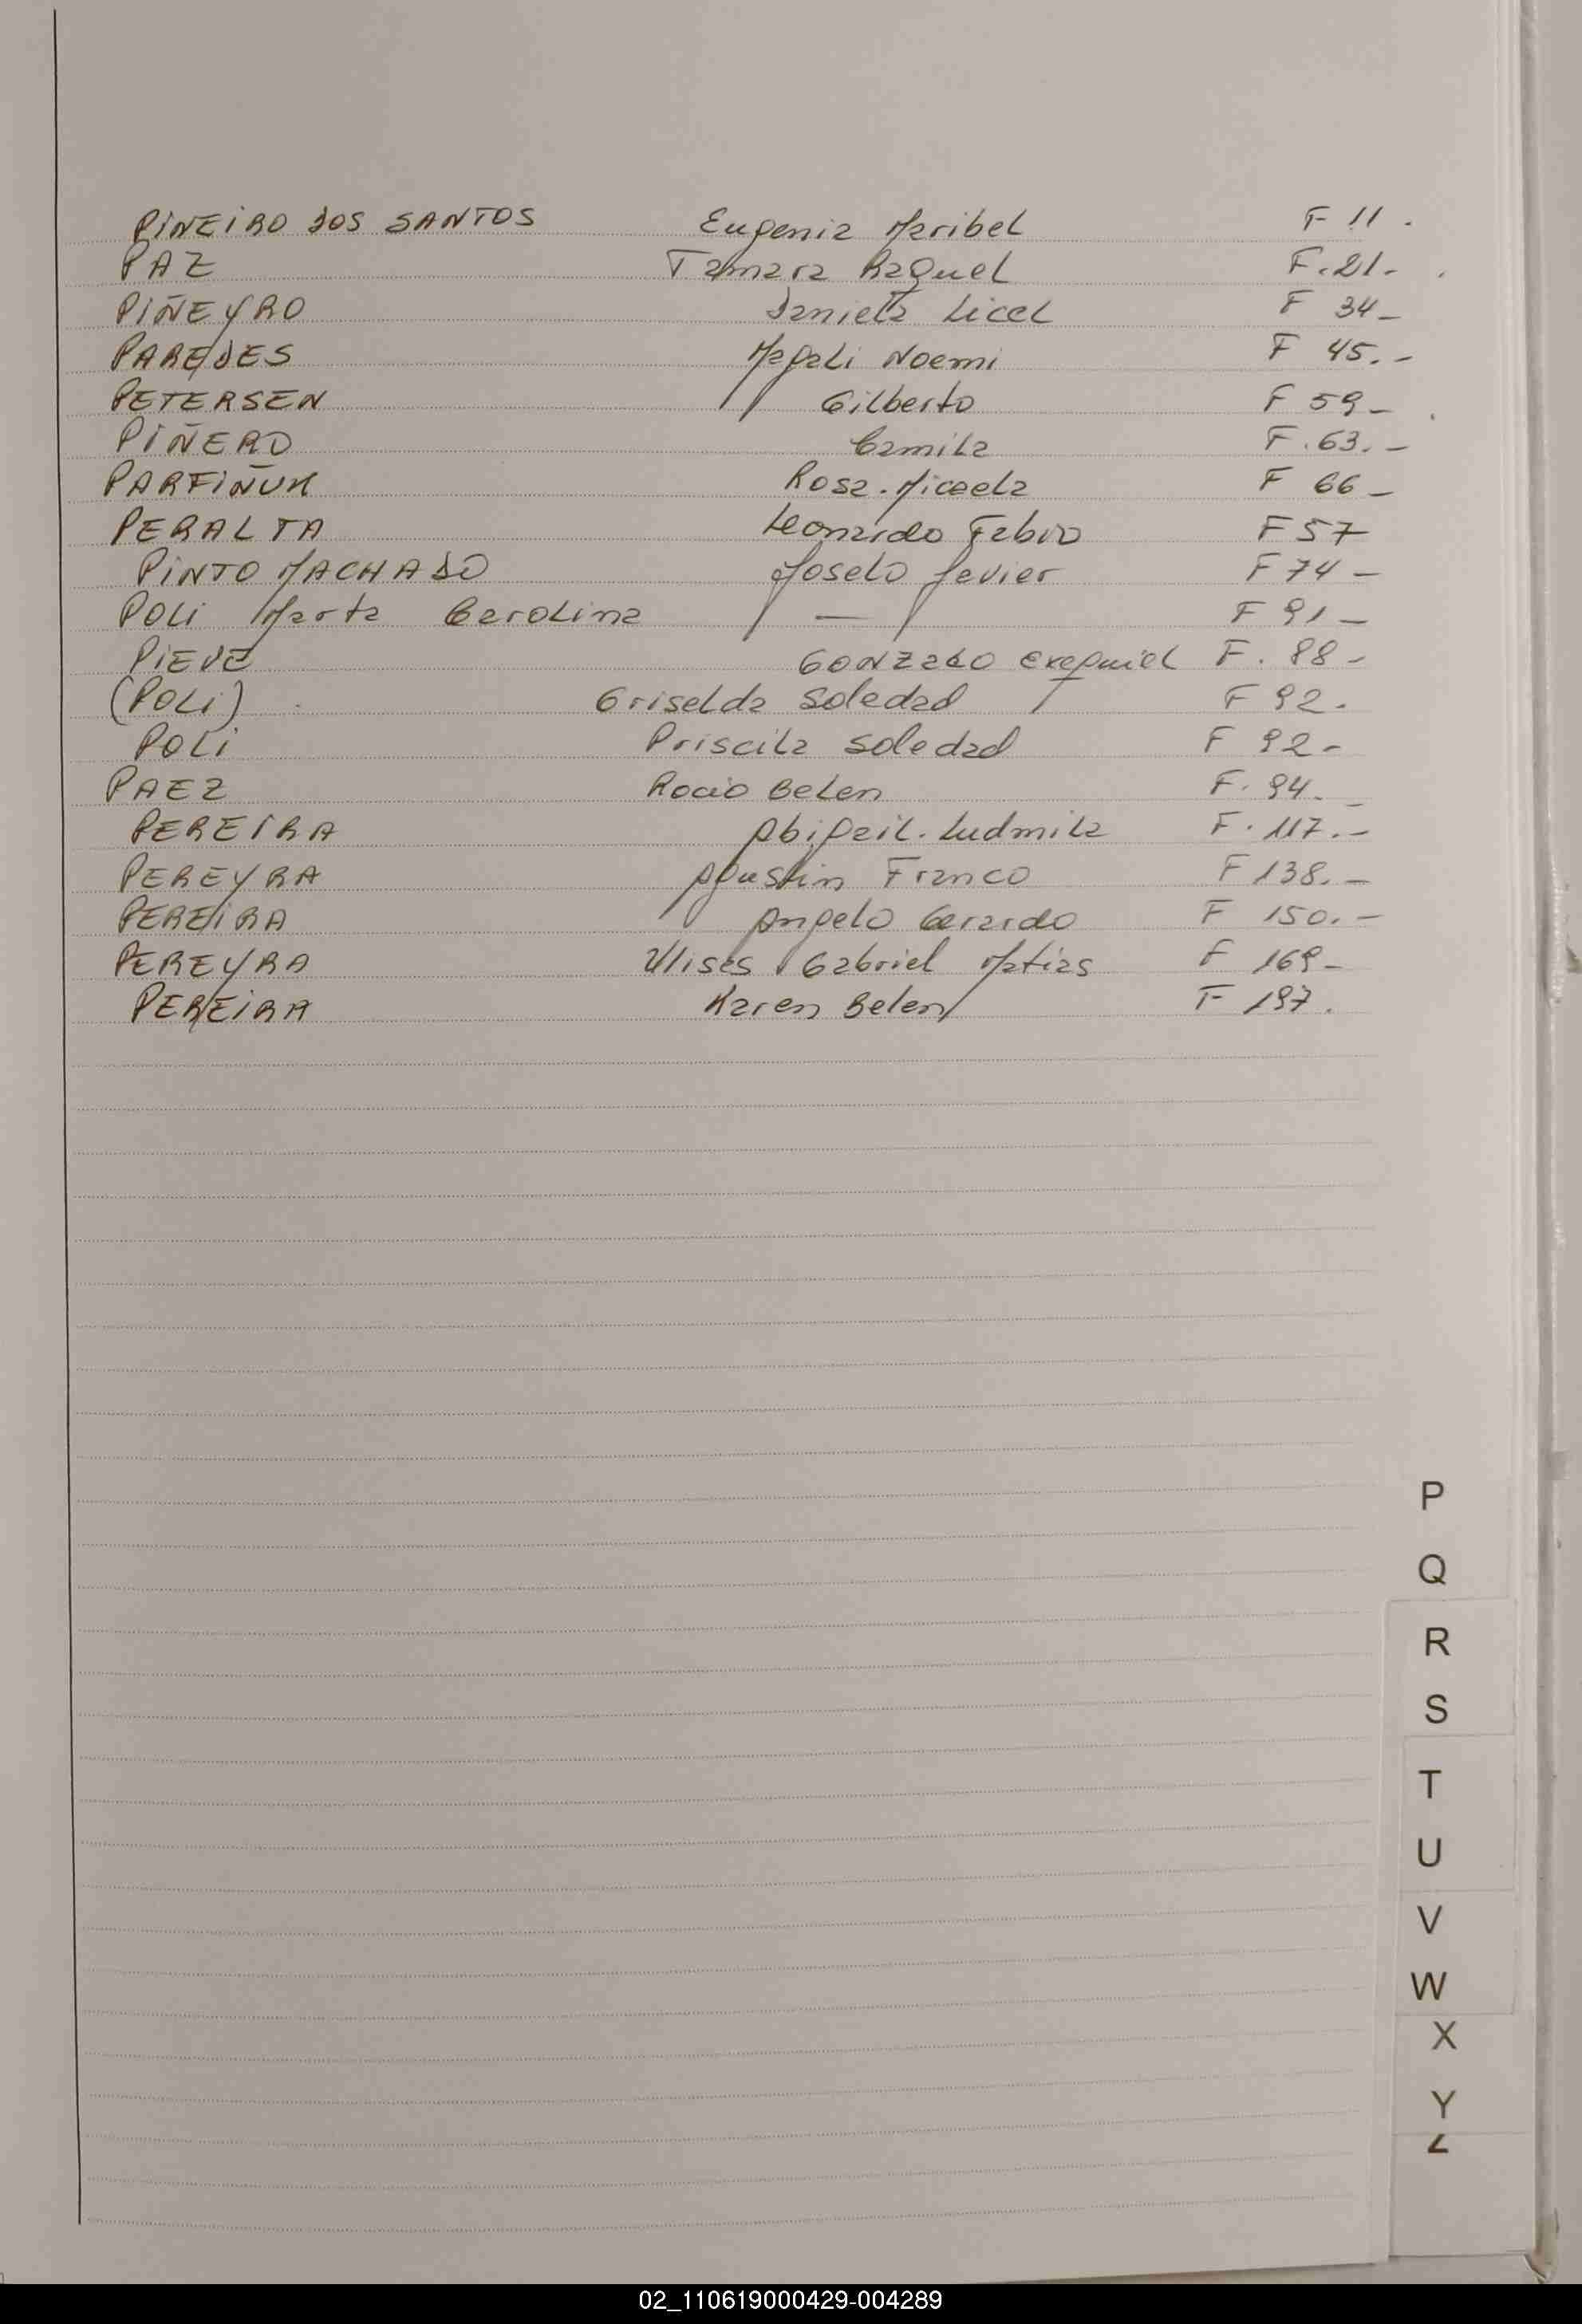 PiNEiRO DOS SANTOS Eugenia Maribel F 11.
PAZ Tamara Raquel F. 21.-
PiÑEYRO Daniela Licel F 34-
PAREDES Magali Noemi F 45.-
PETERSEN Gilberto F 59-
PiÑERO Camila F. 63.-
PARFiÑUK Rosa. Micaela F 66-
PERALTA Leonardo Fabio F 57
PiNTO MACHADO Joselo Javier F 74-
POLi Marta Carolina — F 91-
PiEVE GONZALO Exequiel F. 88-
(POLi) Griselda Soledad F 92.
POLi Priscila Soledad F 92-
PAEZ Rocio Belen F. 94.-
PEREiRA Abigail. Ludmila F. 117.-
PEREYRA Agustin Franco F 138.-
PEREiRA Angelo Gerardo F 150.-
PEREYRA Ulises Gabriel Matias F 169-
PEREiRA Karen Belen F 197.
P
Q
R
S
T
U
V
W
X
Y
Z
02_110619000429-004289